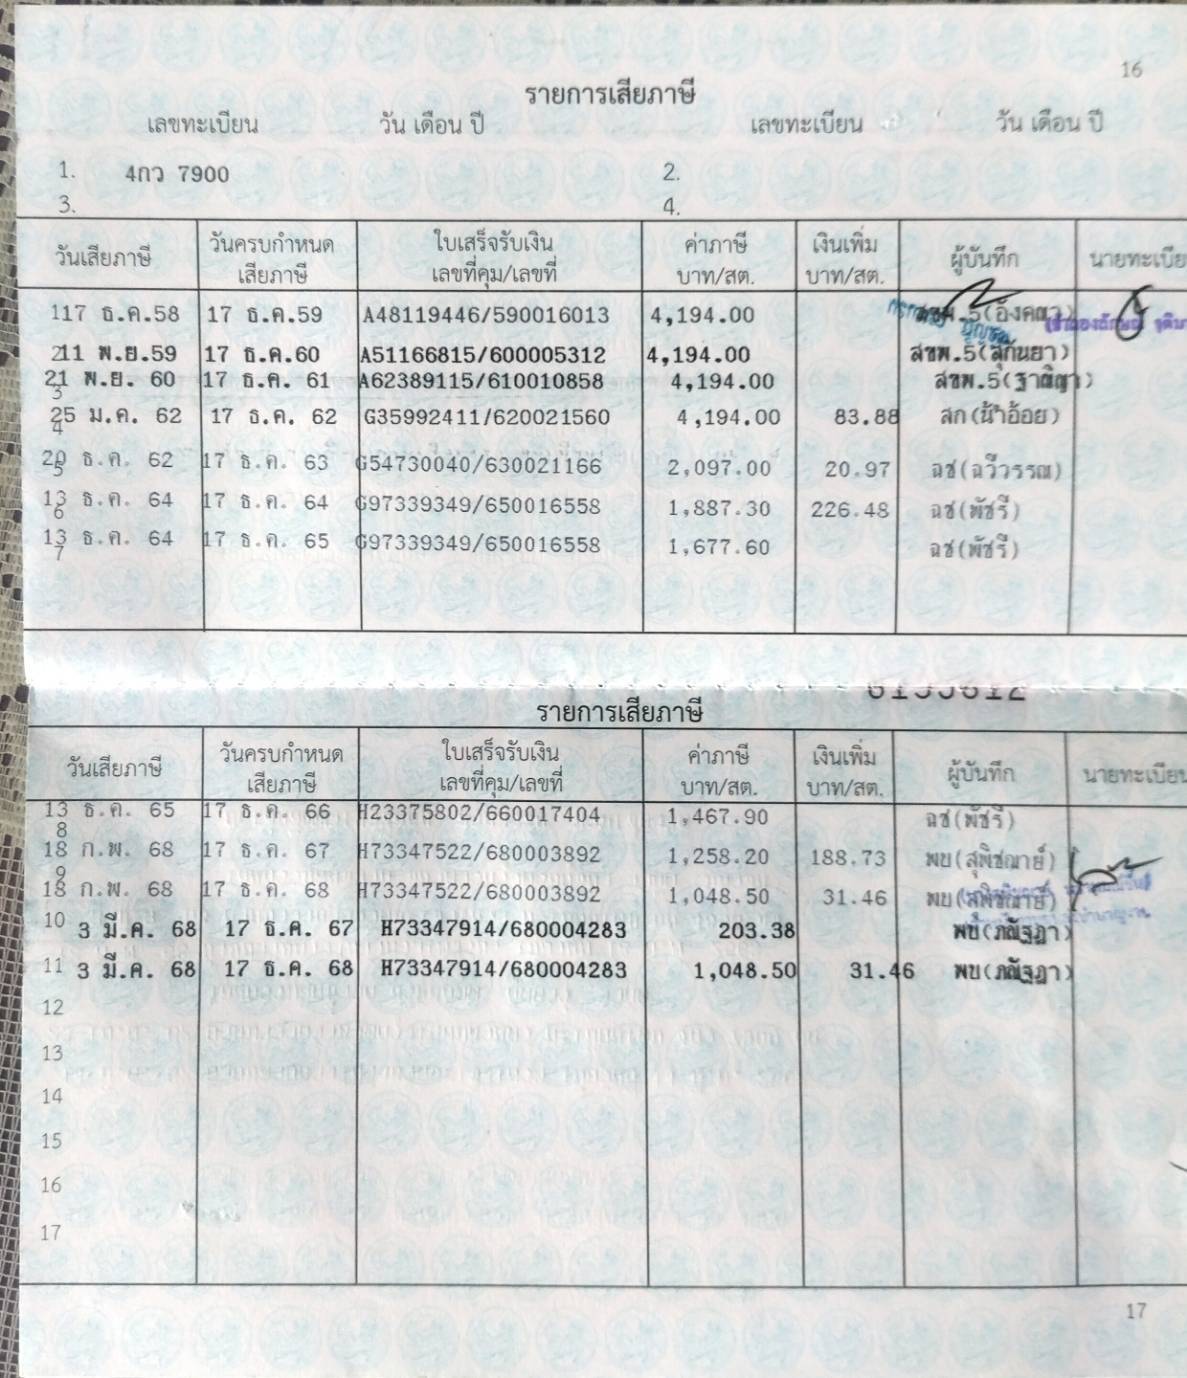 16
รายการเสียภาษี
เลขทะเบียน วัน เดือน ปี เลขทะเบียน วัน เดือน ปี
1. 4กว 7900 2.
3. 4.
วันเสียภาษี วันครบกำหนดเสียภาษี ใบเสร็จรับเงิน เลขที่คุม/เลขที่ ค่าภาษี บาท/สต. เงินเพิ่ม บาท/สต. ผู้บันทึก นายทะเบีย
117 ธ.ค.58 17 ธ.ค.59 A48119446/590016013 4,194.00 สขพ.5(อังคณา)
2 11 พ.ย.59 17 ธ.ค.60 A51166815/600005312 4,194.00 สขพ.5(สุกันยา)
3 21 พ.ย. 60 17 ธ.ค. 61 A62389115/610010858 4,194.00 สขพ.5(ฐาณิญา)
4 25 ม.ค. 62 17 ธ.ค. 62 G35992411/620021560 4,194.00 83.88 สก(น้ำอ้อย)
5 20 ธ.ค. 62 17 ธ.ค. 63 G54730040/630021166 2,097.00 20.97 ฉช(ฉวีวรรณ)
6 13 ธ.ค. 64 17 ธ.ค. 64 G97339349/650016558 1,887.30 226.48 ฉช(พัชรี)
7 13 ธ.ค. 64 17 ธ.ค. 65 G97339349/650016558 1,677.60 ฉช(พัชรี)
รายการเสียภาษี
วันเสียภาษี วันครบกำหนดเสียภาษี ใบเสร็จรับเงิน เลขที่คุม/เลขที่ ค่าภาษี บาท/สต. เงินเพิ่ม บาท/สต. ผู้บันทึก นายทะเบียน
8 13 ธ.ค. 65 17 ธ.ค. 66 H23375802/660017404 1,467.90 ฉช(พัชรี)
9 18 ก.พ. 68 17 ธ.ค. 67 H73347522/680003892 1,258.20 188.73 พบ(สุพิชฌาย์)
18 ก.พ. 68 17 ธ.ค. 68 H73347522/680003892 1,048.50 31.46 พบ(สุพิชฌาย์)
10 3 มี.ค. 68 17 ธ.ค. 67 H73347914/680004283 203.38 พบ(ภณัฐฎา)
11 3 มี.ค. 68 17 ธ.ค. 68 H73347914/680004283 1,048.50 31.46 พบ(ภณัฐฎา)
12
13
14
15
16
17
17